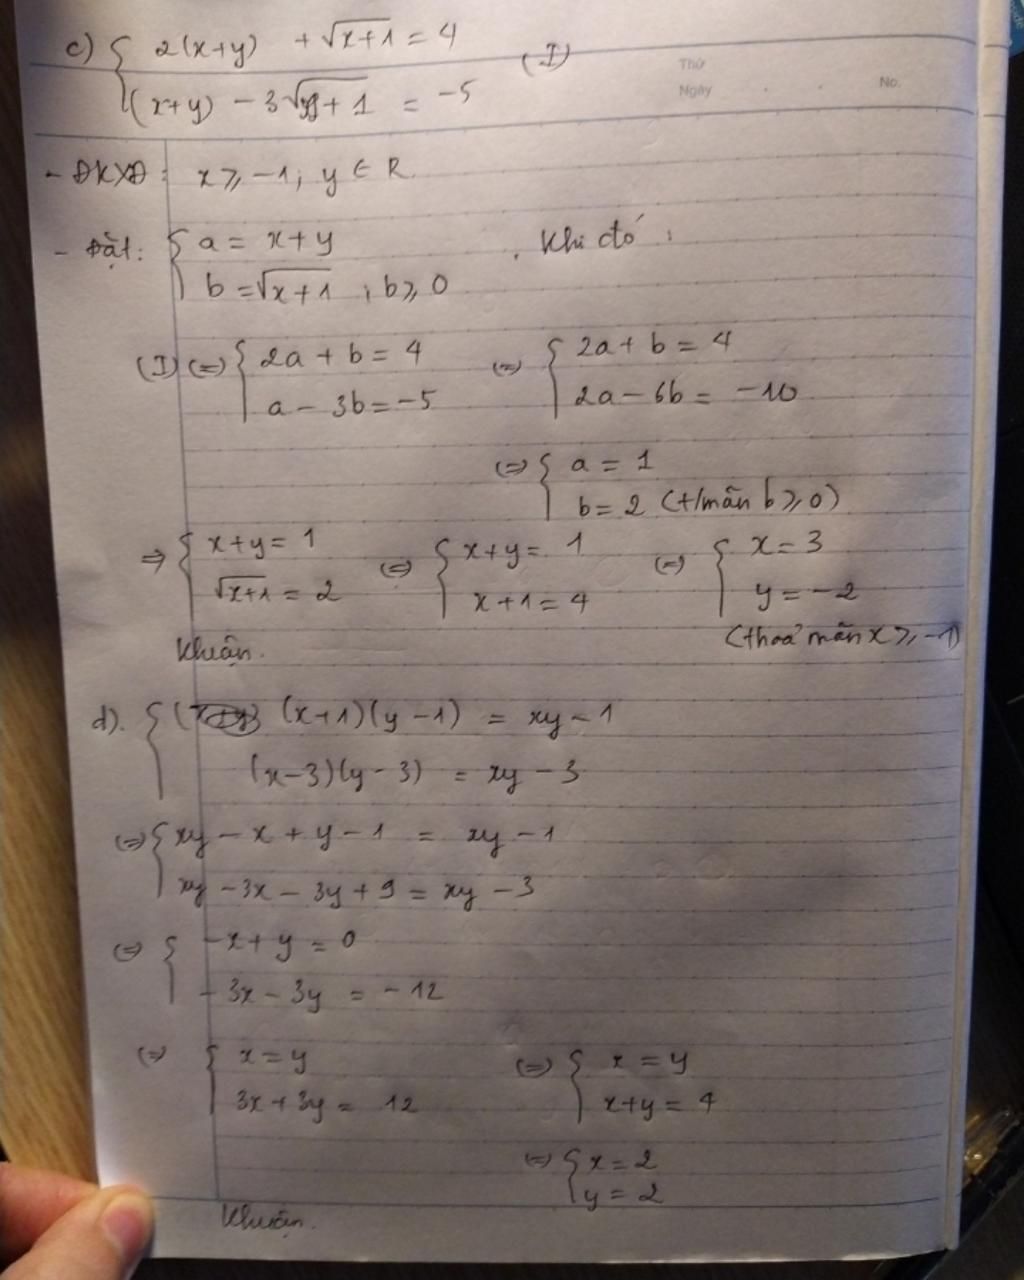 c) { 2(x+y) + √x+1 = 4
(x+y) - 3√x+1 = -5 (I)
Thứ
Ngày . . No.
- ĐKXĐ: x ⩾ -1; y ∈ R.
- Đặt: { a = x+y
b = √x+1 ; b ⩾ 0 . Khi đó :
(I) (=) { 2a + b = 4 (=) { 2a + b = 4
a - 3b = -5 2a - 6b = -10
(=) { a = 1
b = 2 (t/mãn b ⩾ 0)
=> { x+y = 1 (=) { x+y = 1 (=) { x = 3
√x+1 = 2 x+1 = 4 y = -2
Khuận. (thoả mãn x ⩾ -1)
d). { (x+1)(y-1) = xy - 1
(x-3)(y-3) = xy - 3
(=) { xy - x + y - 1 = xy - 1
xy - 3x - 3y + 9 = xy - 3
(=) { -x + y = 0
- 3x - 3y = -12
(=) { x = y (=) { x = y
3x + 3y = 12 x+y = 4
(=) { x = 2
y = 2
Khuận.